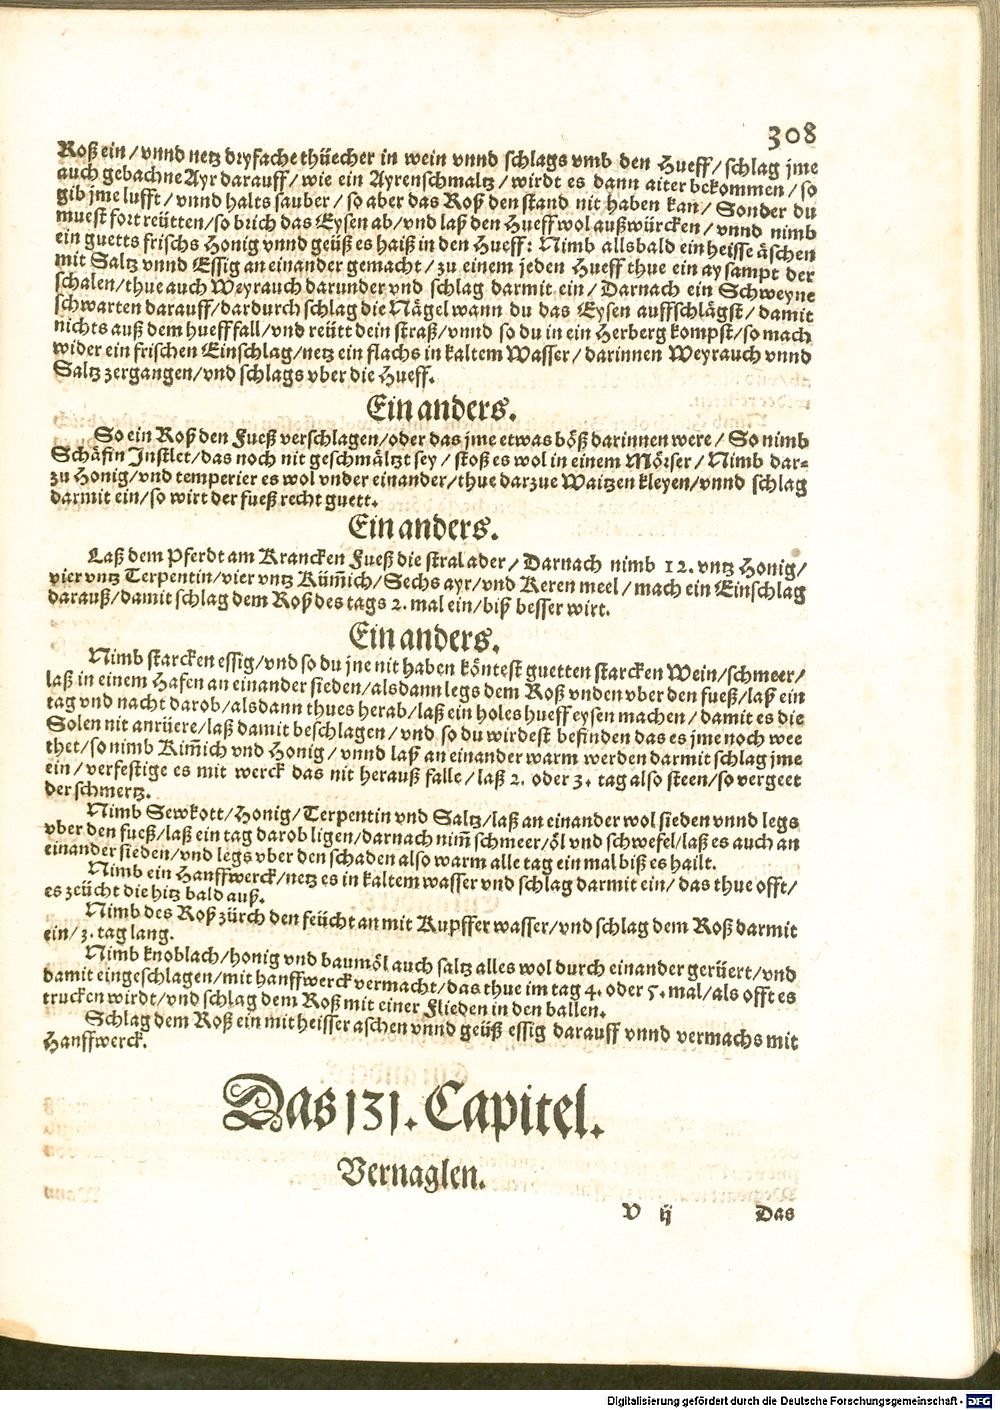 308
Roß ein / vnnd netz dryfache thüecher in wein vnnd schlags vmb den Hueff / schlag jme
auch gebachne Ayr darauff / wie ein Ayrenschmaltz / wirdt es dann aiter bekommen / so
gib jme lufft / vnnd halts sauber / so aber das Roß den stand nit haben kan / Sonder du
muest fort reütten / so brich das Eysen ab / vnd laß den Hueff wol außwürcken / vnnd nimb
ein guetts frischs Honig vnnd geüß es haiß in den Hueff: Nimb allsbald ein heisse äschen
mit Saltz vnnd Essig an einander gemacht / zu einem jeden Hueff thue ein ay sampt der
schalen / thue auch Weyrauch darunder vnd schlag darmit ein / Darnach ein Schweyne
schwarten darauff / dardurch schlag die Nägel wann du das Eysen auffschlägst / damit
nichts auß dem hueff fall / vnd reütt dein straß / vnnd so du in ein Herberg kompst / so mach
wider ein frischen Einschlag / netz ein flachs in kaltem Wasser / darinnen Weyrauch vnnd
Saltz zergangen / vnd schlags vber die Hueff.
Ein anders.
So ein Roß den Fueß verschlagen / oder das jme etwas böß darinnen were / So nimb
Schäfin Jnstlet / das noch nit geschmältzt sey / stoß es wol in einem Mörser / Nimb dar-
zu Honig / vnd temperier es wol vnder einander / thue darzue Waitzen kleyen / vnnd schlag
darmit ein / so wirt der fueß recht guett.
Ein anders.
Laß dem Pferdt am Krancken Fueß die stral ader / Darnach nimb 12. vntz Honig /
vier vntz Terpentin / vier vntz Küm̄ich / Sechs ayr / vnd Keren meel / mach ein Einschlag
darauß / damit schlag dem Roß des tags 2. mal ein / biß besser wirt.
Ein anders.
Nimb starcken essig / vnd so du jne nit haben köntest guetten starcken Wein / schmeer /
laß in einem Hafen an einander sieden / alsdann legs dem Roß vnden vber den fueß / laß ein
tag vnd nacht darob / alsdann thues herab / laß ein holes hueff eysen machen / damit es die
Solen nit anrüere / laß damit beschlagen / vnd so du wirdest befinden das es jme noch wee
thet / so nimb Kim̄ich vnd Honig / vnnd laß an einander warm werden darmit schlag jme
ein / verfestige es mit werck das nit herauß falle / laß 2. oder 3. tag also steen / so vergeet
der schmertz.
Nimb Sewkott / Honig / Terpentin vnd Saltz / laß an einander wol sieden vnnd legs
vber den fueß / laß ein tag darob ligen / darnach nim̄ schmeer / öl vnd schwefel / laß es auch an
einander sieden / vnd legs vber den schaden also warm alle tag ein mal biß es hailt.
Nimb ein Hanffwerck / netz es in kaltem wasser vnd schlag darmit ein / das thue offt /
es zeücht die hitz bald auß.
Nimb des Roß zürch den feücht an mit Kupffer wasser / vnd schlag dem Roß darmit
ein / 3. tag lang.
Nimb knoblach / honig vnd baumöl auch saltz alles wol durch einander gerüert / vnd
damit eingeschlagen / mit hanffwerck vermacht / das thue im tag 4. oder 5. mal / als offt es
trucken wirdt / vnd schlag dem Roß mit einer Flieden in den ballen.
Schlag dem Roß ein mit heisser aschen vnnd geüß essig darauff vnnd vermachs mit
Hanffwerck.
Das 131. Capitel.
Vernaglen.
V ij Das
Digitalisierung gefördert durch die Deutsche Forschungsgemeinschaft - DFG